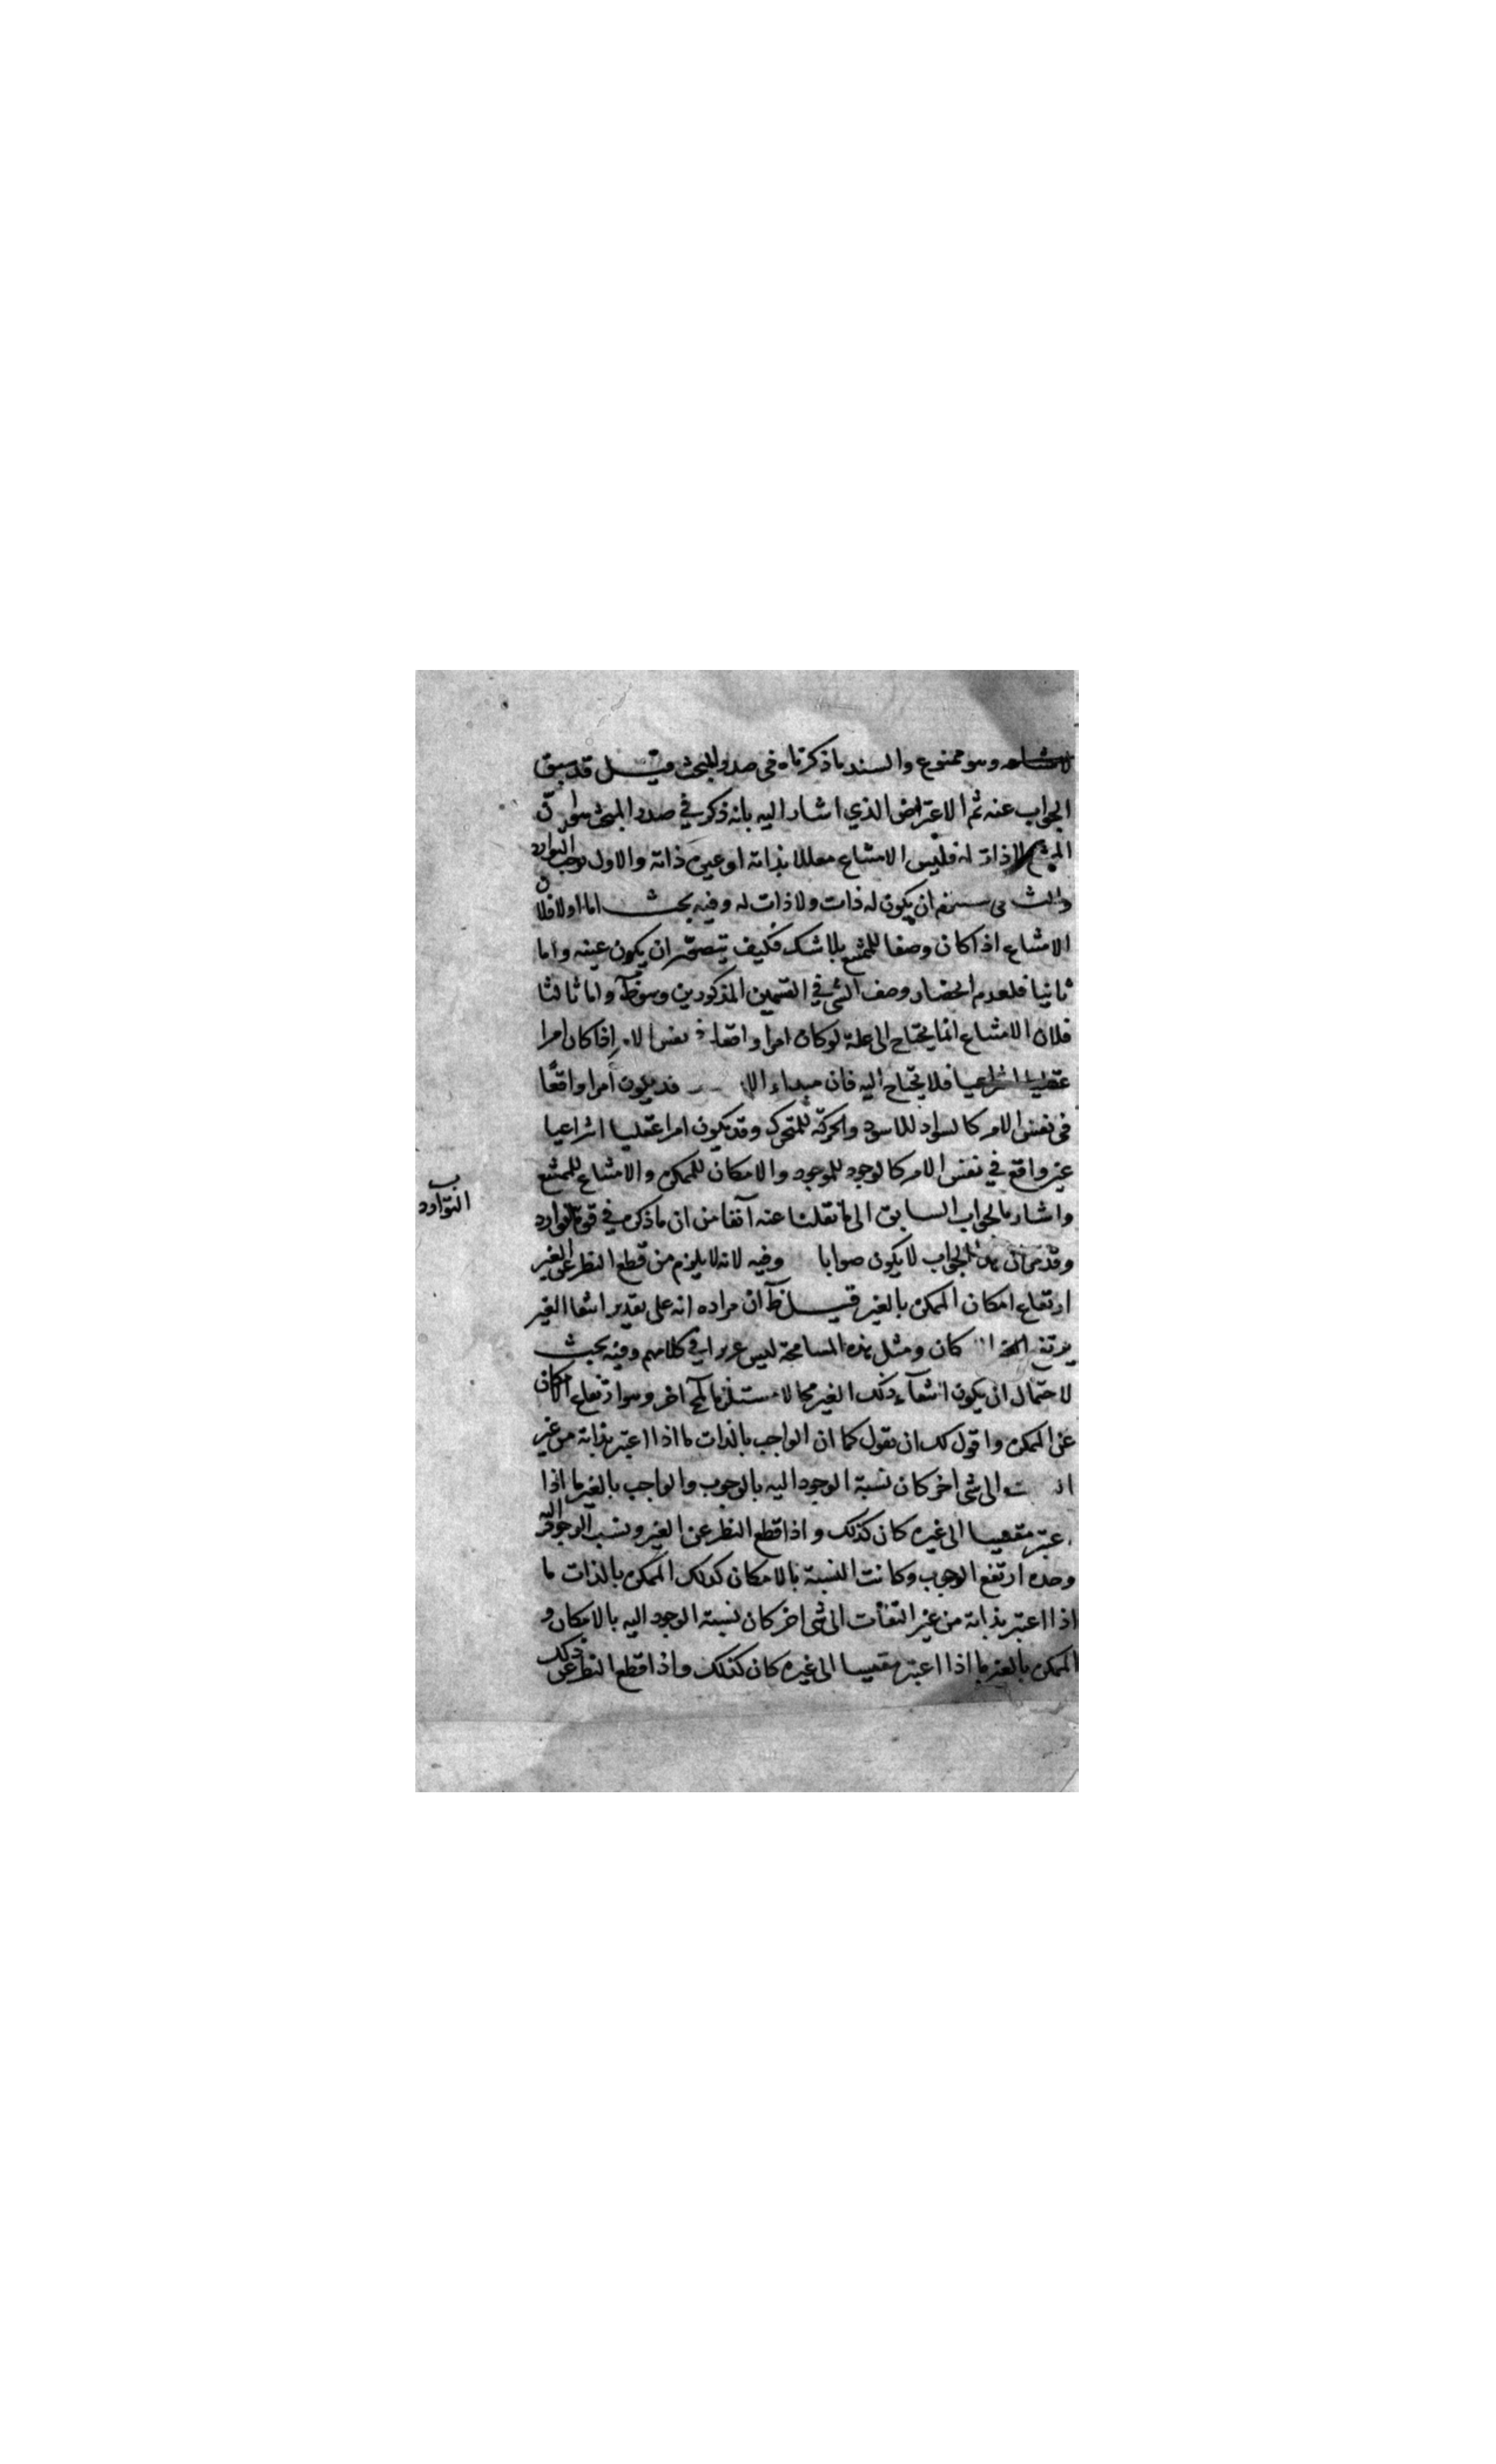 وهو ممنوع والسند ما ذكرناه في صدر المبحث قيل قد سبق
الجواب عنه ثم الاعتراض الذي اشار اليه بانه ذكر في صدر المبحث هو ان
لا ذات له فليس الامتناع معللا بذاته او غيره ذاته والاول يوجب التوارد
ان يكون له ذات ولا ذات له وفيه بحث اما اولا فلان
الامتناع اذا كان وصفا للممتنع بلا شك فكيف يتصور ان يكون عينه واما
ثانيا فلعدم انحصار وصف الشئ في القسمين المذكورين وهو ظ واما ثالثا
فلان الامتناع انما يحتاج الى علة لو كان امرا واقعا في نفس الامر اذا كان امرا
فلا يحتاج اليه فان مبداء قد يكون امرا واقعا
في نفس الامر كالسواد للاسود والحركة للمتحرك وقد يكون امرا عقليا انتزاعيا
غير واقع في نفس الامر كالوجود للموجود والامكان للممكن والامتناع للممتنع
واشار بالجواب السابق الى ما نقلنا عنه آنفا من ان ما ذكره في قوة التوارد
وقد مر ان هذا الجواب لا يكون صوابا وفيه لانه لا يلزم من قطع النظر عن الغير
ارتفاع امكان الممكن بالغير قيل ظ ان مراده انه على تقدير انتفا الغير
يرتفع كان ومثل هذه المسامحة ليس عزيزا في كلامهم وفيه بحث
لاحتمال ان يكون انتفآء ذلك الغير محالا مستلزما لمح اخر وهو ارتفاع الامكان
عن الممكن واقول لك ان تقول كما ان الواجب بالذات ما اذا اعتبر بذاته من غير
الى شئ اخر كان نسبة الوجود اليه بالوجوب والواجب بالغير ما اذا
اعتبر مقيسا الى غيره كان كذلك واذا قطع النظر عن الغير ونسب الوجود اليه
وحده ارتفع الوجوب وكانت النسبة بالامكان كذلك الممكن بالذات ما
اذا اعتبر بذاته من غير التفات الى شئ اخر كان نسبة الوجود اليه بالامكان و
الممكن بالغير ما اذا اعتبر مقيسا الى غيره كان كذلك واذا قطع النظر عن ذلك
التوارد